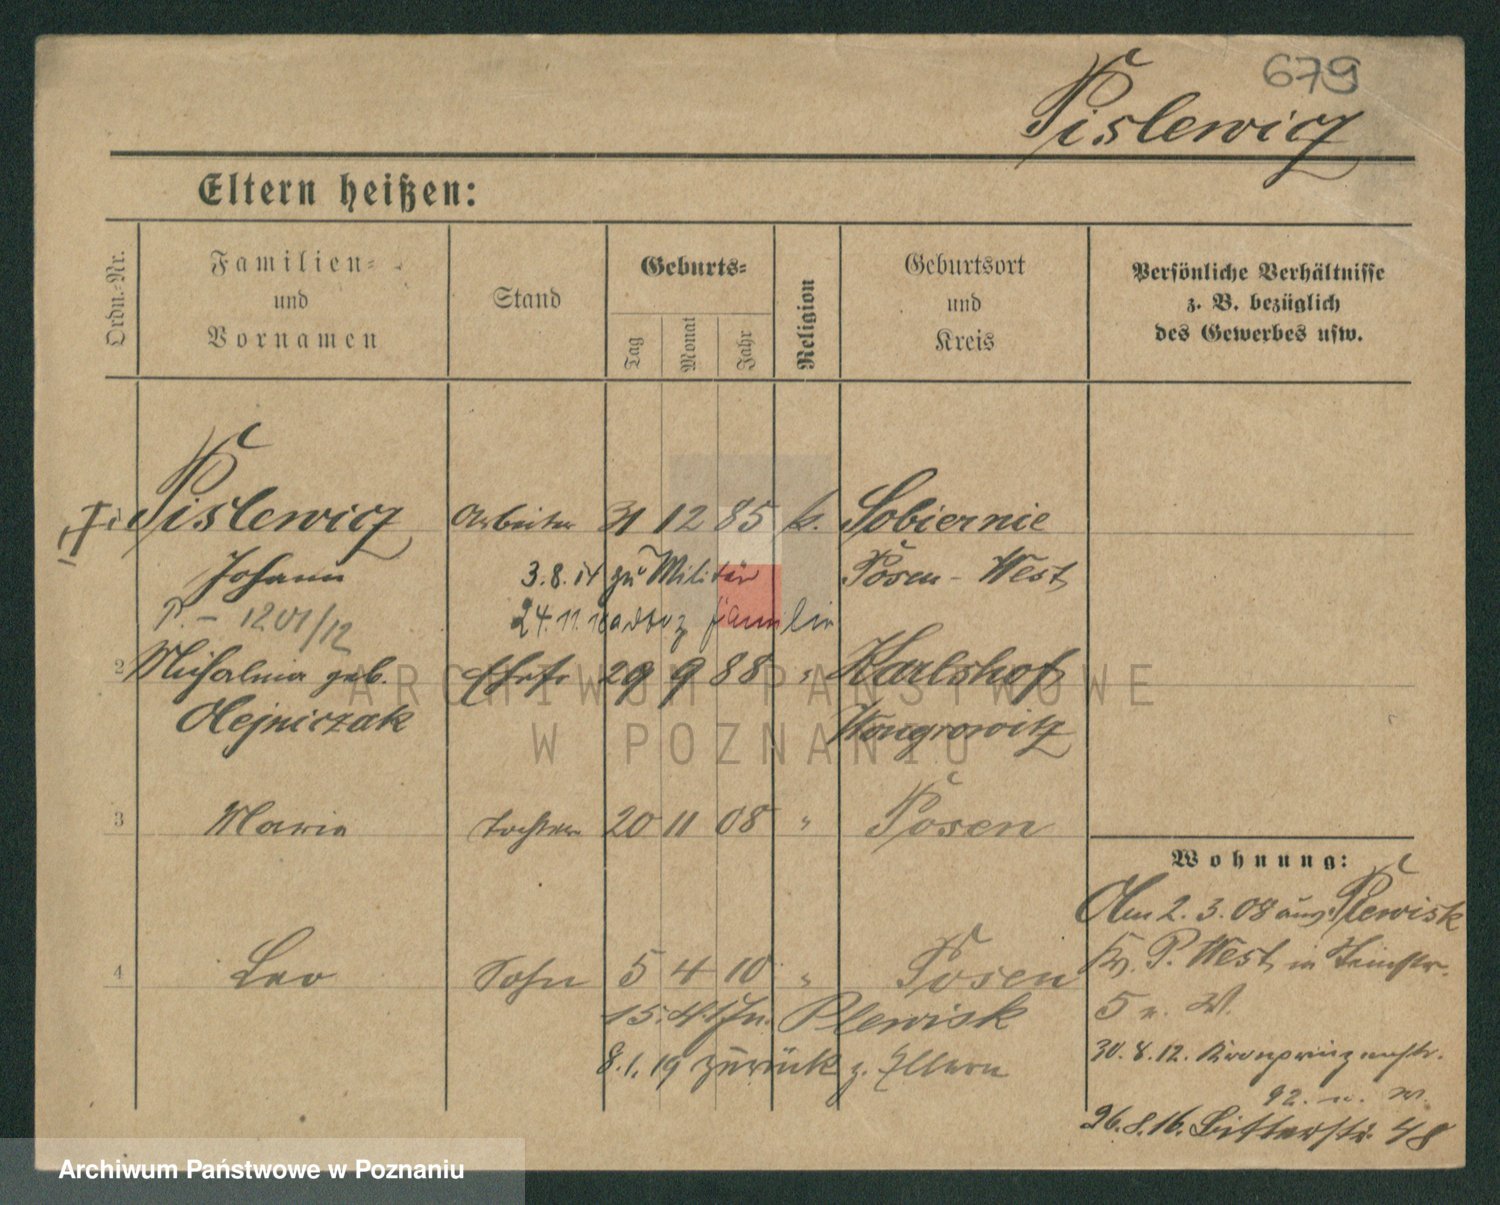 679
Pislewicz
Eltern heißen:
Ordn.-Nr.
Familien-
und
Vornamen
Stand
Geburts-
Tag
Monat
Jahr
Religion
Geburtsort
und
Kreis
Persönliche Verhältnisse
z. B. bezüglich
des Gewerbes usw.
Pislewicz Arbeiter 31 12 85 k. Sobiernie
Johann 3.8.14 zu Militär Posen-West
P. - 1201/12 24.11.18 Familie
2 Michalina geb. Ehefr 29 9 88 " Karlshof
Olejniczak Wongrowitz
3 Maria Tochter 20 11 08 " Posen
4 Leo Sohn 5 4 10 " Posen
15.4.17 n. Plewisk
8.1.19 zurück z. Eltern
Wohnung:
Am 2.3.08 aus Plewisk
Kr. P. West in
5 n. W.
30.8.12. Kronprinzenstr.
92. n. W.
26.8.16. Bitterstr. 48
ARCHIWUM PAŃSTWOWE
W POZNANIU
Archiwum Państwowe w Poznaniu